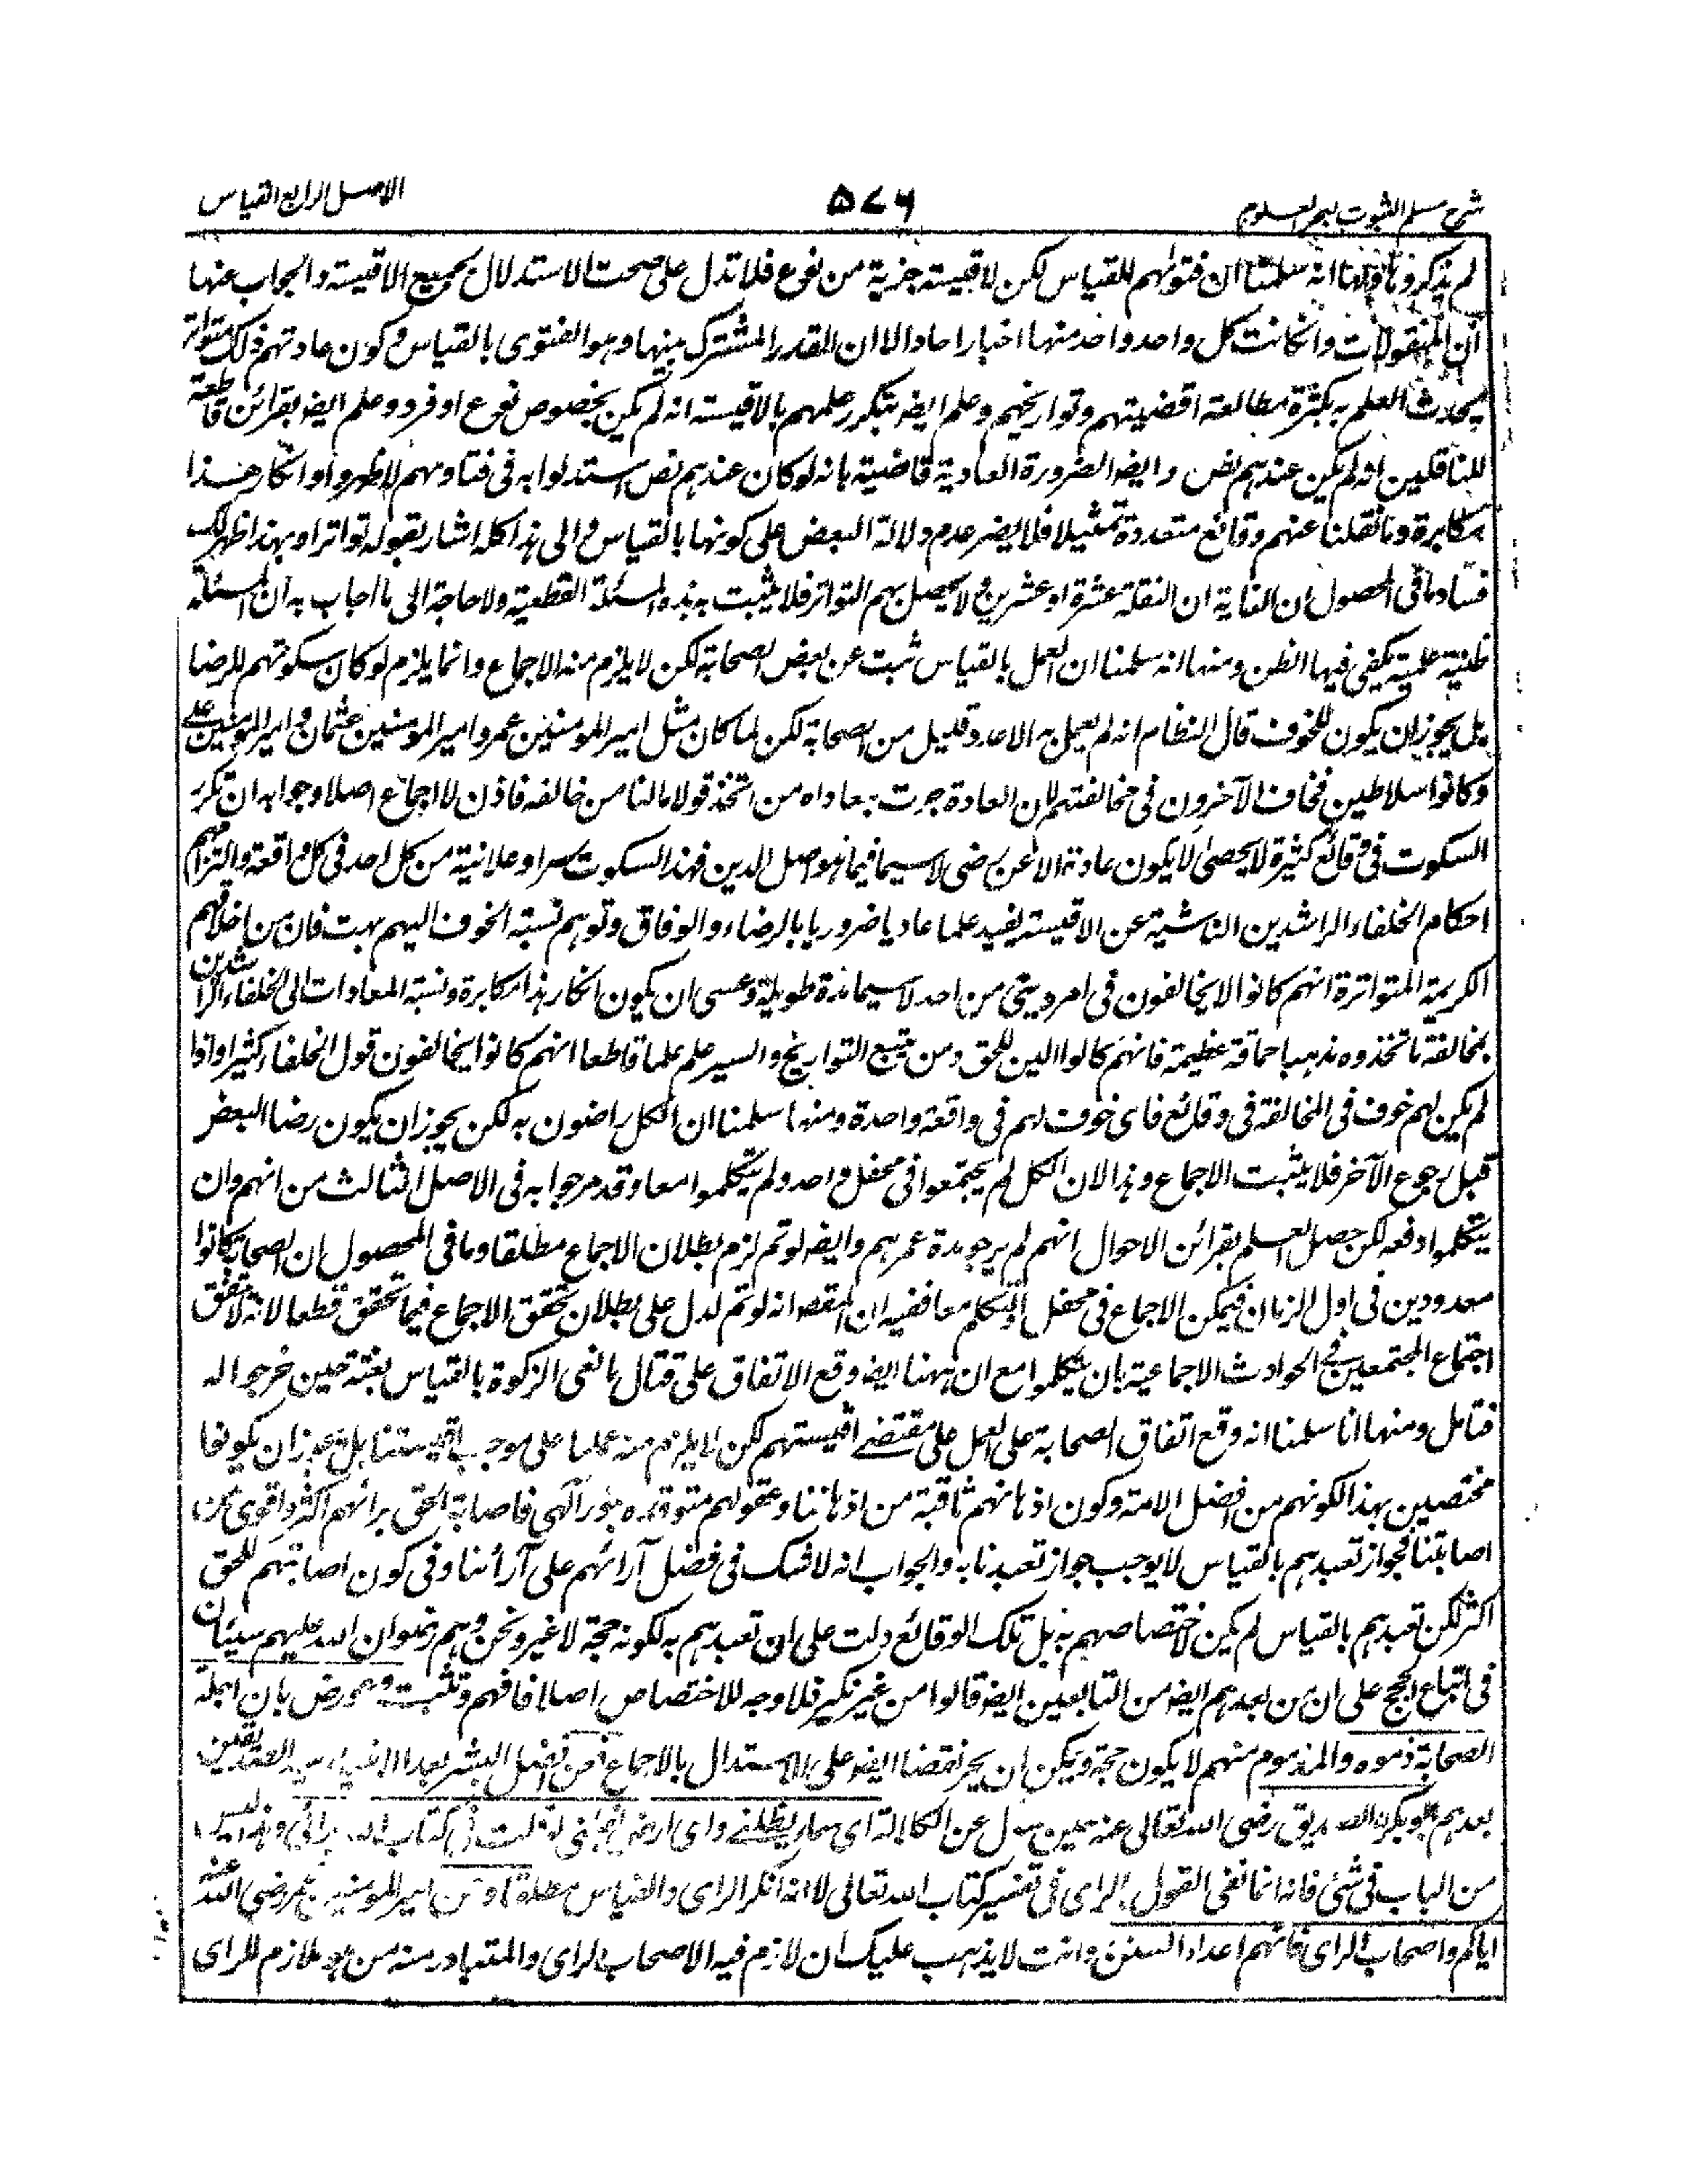 شرح مسلم الثبوت لبحر العلوم
۵۷۶
الاصل الرابع القياس
لم يذكروها ومنها انه سلمنا ان فتوٰهم للقياس لكن لاقيسة جزئية من نوع فلا تدل على صحت الاستدلال بجميع الاقيسة والجواب عنها
ان المنقولات وانكانت كل واحد واحد منها اخبارا احادا الا ان القدر المشترك بينها وهو الفتوى بالقياس وكون عادتهم ذلك متواتر
يحدث العلم به بكثرة مطالعة اقضيتهم وتواريخهم وعلم ايضا بتكرر علمهم بالاقيسة انه لم يكن بخصوص نوع او فرد وعلم ايضا بقرائن قاطعة
للناقلين انه لم يكن عندهم نص وايضا الضرورة العادية قاضية بانه لو كان عندهم نص استدلوا به فى فتاوٰهم لاظهروا وانكار هذا
مكابرة وما نقلنا عنهم وقائع متعددة تمثيلا فلا يضر عدم دلالة البعض على كونها بالقياس والى هذا كله اشار بقوله تواترا وبهذا ظهر لك
فساد ما فى المحصول ان الغاية ان النقلة عشرة او عشرين ولا يحصل بهم التواتر فلا يثبت به هذه المسئلة القطعية ولا حاجة الى ما اجاب به ان المسئلة
ظنية علمية يكفى فيها الظن ومنها انه سلمنا ان العمل بالقياس ثبت عن بعض الصحابة لكن لا يلزم منه الاجماع وانما يلزم لو كان سكوتهم للرضا
بل يجوز ان يكون للخوف قال النظام انه لم يعمل به الا عدد قليل من الصحابة لكن لما كان مثل امير المومنين عمر وامير المومنين عثمان وامير المومنين على
وكانوا سلاطين فخاف الآخرون فى مخالفتهم لان العادة جرت بمعاداه من اتخذ قولا مالنا من خالفه فاذن لا اجماع اصلا وجوابه ان تكرر
السكوت فى وقائع كثيرة لا يحصى لا يكون عادة الا عن رضى لا سيما فيما هو اصل الدين فهذا السكوت سرا وعلانية من كل احد فى كل واقعة والتزامهم
احكام الخلفاء الراشدين الناشية عن الاقيسة يفيد علما عاديا ضروريا بالرضاء والوفاق وتوهم نسبة الخوف اليهم بهت فان من اخلاقهم
الكريمة المتواترة انهم كانوا لا يخافون فى امر دينى من احد لا سيما مدة طويلة وعسى ان يكون انكار هذا مكابرة ونسبة المعادات الى الخلفاء الراشدين
بمخالفة ما تخذوه مذهبا حماقة عظيمة فانهم كانوا الين للحق ومن تتبع التواريخ والسير علم علما قاطعا انهم كانوا يخالفون قول الخلفاء كثيرا واذا
لم يكن لهم خوف فى المخالفة فى وقائع فاى خوف لهم فى واقعة واحدة ومنها سلمنا ان الكل راضون به لكن يجوز ان يكون رضا البعض
قبل رجوع الآخر فلا يثبت الاجماع وهذا لان الكل لم يجتمعوا فى محفل واحد ولم يتكلموا معا وقد مر جوابه فى الاصل الثالث من انهم وان
يتكلموا دفعه لكن حصل العلم بقرائن الاحوال انهم لم يرجوا مدة عمرهم وايضا لو تم لزم بطلان الاجماع مطلقا وما فى المحصول ان الصحابة كانوا
معدودين فى اول الزمان فيمكن الاجماع فى محفل والتكلم معا ففيه ان المقصد انه لو تم لدل على بطلان تحقق الاجماع فيما تحقق قطعا لانه لا يتفق
اجتماع المجتمعين فى الحوادث الاجماعية بان يتكلموا مع ان ههنا ايضا وقع الاتفاق على قتال مانعى الزكوة بالقياس بغتة حين خرجوا له
فتامل ومنها انا سلمنا انه وقع اتفاق الصحابة على العمل على مقتضے اقيستهم لكن لا يلزم منه علمنا على موجب اقيستنا بل يجوز ان يكونوا
مختصين بهذا لكونهم من افضل الامة وكون اذهانهم ثاقبة من اذهاننا وعقولهم متوقده بنور آلهى فاصابة الحق برائهم اكثر واقوى من
اصابتنا فجواز تعبدهم بالقياس لا يوجب جواز تعبدنا به والجواب انه لا شك فى فضل آرائهم على آرائنا وفى كون اصابتهم للحق
اكثر لكن تعبدهم بالقياس لم يكن لاختصاصهم به بل تلك الوقائع دلت على ان تعبدهم به لكونه حجة لا غير ونحن وهم رضوان الله عليهم سيئان
فى اتباع الحجج على ان من بعدهم ايضا من التابعين ايضا قالوا من غير نكير فلا وجه للاختصاص اصلا فافهم وتثبت وعورض بان اجلة
الصحابة ذموه والمذموم منهم لا يكون حجة ويمكن ان يحرر نقضا ايضا على الاستدلال بالاجماع فمن افضل البشر بعد الانبياء سيد الصديقين
بعدهم ابو بكر الصديق رضى الله تعالى عنه حين سئل عن الكلالة اى سماء يظلنے واى ارض تقلنى اذا قلت فى كتاب الله برائى وهذا ليس
من الباب فى شئى فانه انما نفى القول بالراى فى تفسير كتاب الله تعالى لا انه انكر الراى والقياس مطلقا وعن امير المومنين عمر رضى الله عنه
اياكم واصحاب الراى فانهم اعداء السنن وانت لا يذهب عليك ان لازم فيه الا صحاب الراى والمتبادر منه من هو ملازم للراى